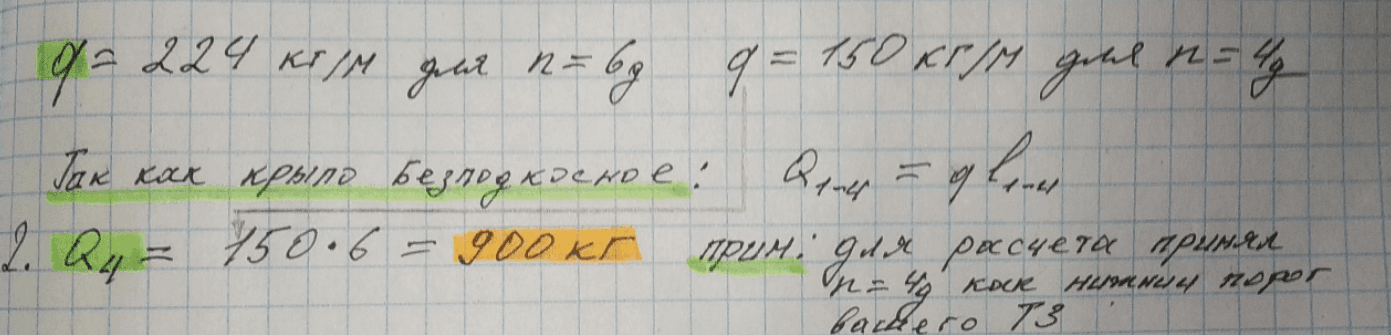 q = 224 кг/м для n = 6g q = 150 кг/м для n = 4g
Так как крыло безподкосное: Q₁₋₄ = q l₁₋₄
2. Q₄ = 150 · 6 = 900 кг прим: для расчета принял
n = 4g как нижний порог
вашего ТЗ